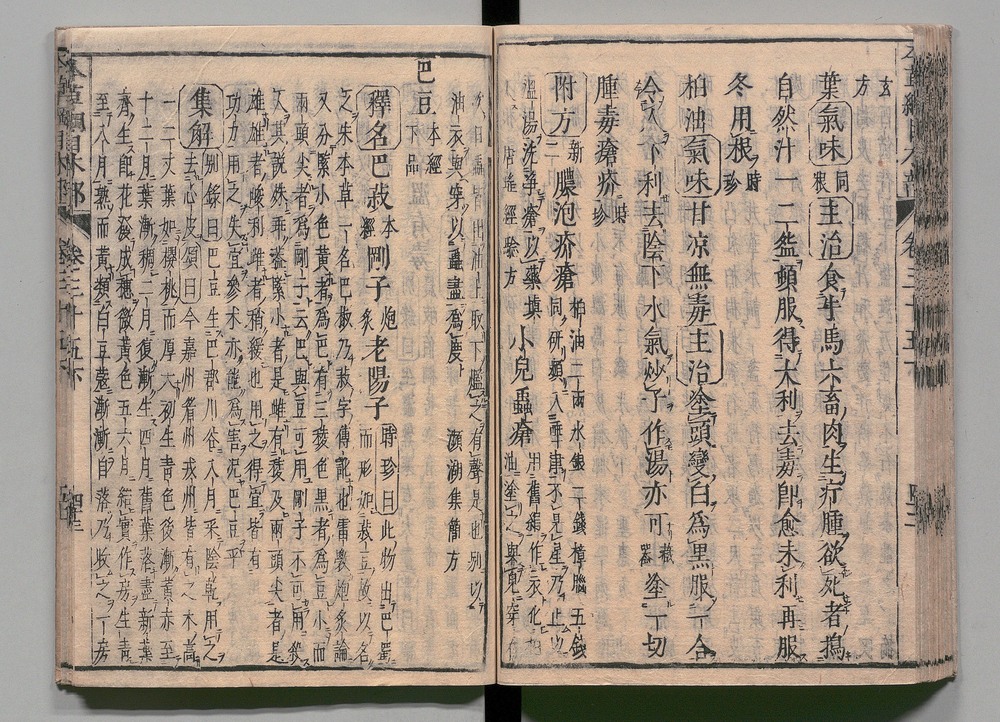 玄方
葉氣味同根主治食牛馬六畜肉生疔腫欲死者搗
自然汁一二盌頓服得大利去毒即愈未利再服
冬用根時珍
桕油氣味甘凉無毒主治塗頭變白為黑服一合
令人下利去陰下水氣炒子作湯亦可藏器塗一切
腫毒瘡疥時珍
附方二新膿泡疥瘡桕油二兩水銀二錢樟腦五錢
同研頻入唾津不見星乃止以
溫湯洗浄瘡以藥填
唐瑤經驗方小兒蟲瘡用舊絹作衣化桕
油塗之與兒穿
次日蟲皆出油上取下爁之有聲是也別以
油衣與穿以蟲盡為度瀕湖集簡方
巴豆本經下品
釋名巴菽本經剛子炮炙老陽子時珍曰此物出巴蜀
而形如菽豆故以名
之宋本草一名巴椒乃菽字傳訛也雷斅炮炙論
又分緊小色黄者為巴有三稜色黑者為豆小而
兩頭尖者為剛子云巴與豆可用剛子不可用殺
人其説殊乖蓋緊小者是雌有稜及兩頭尖者是
雄雄者峻利雌者稍緩也用之得宜皆有
功力用之失宜參朮亦能為害况巴豆乎
集解別錄曰巴豆生巴郡川谷八月采陰乾用之
去心皮頌曰今嘉州眉州戎州皆有之木高
一二丈葉如櫻桃而厚大初生青色後漸黄赤至
十二月葉漸稠二月復漸生四月舊葉落盡新葉
齊生即花發成穗微黄色五六月結實作房生青
至八月熟而黄類白豆蔲漸漸自落乃收之一房